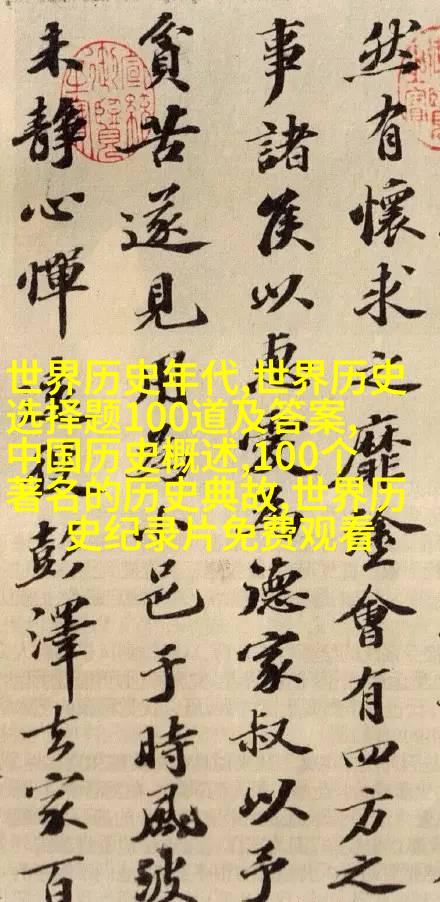 然有懷求之靡塗會有四方之
事諸侯以惠愛為德家叔以予
貧苦遂見用為小邑于時風波
未靜心憚遠役彭澤去家百
世界历史年代,世界历史
选择题100道及答案,
中国历史概述,100个
著名的历史典故,世界历
史纪录片免费观看